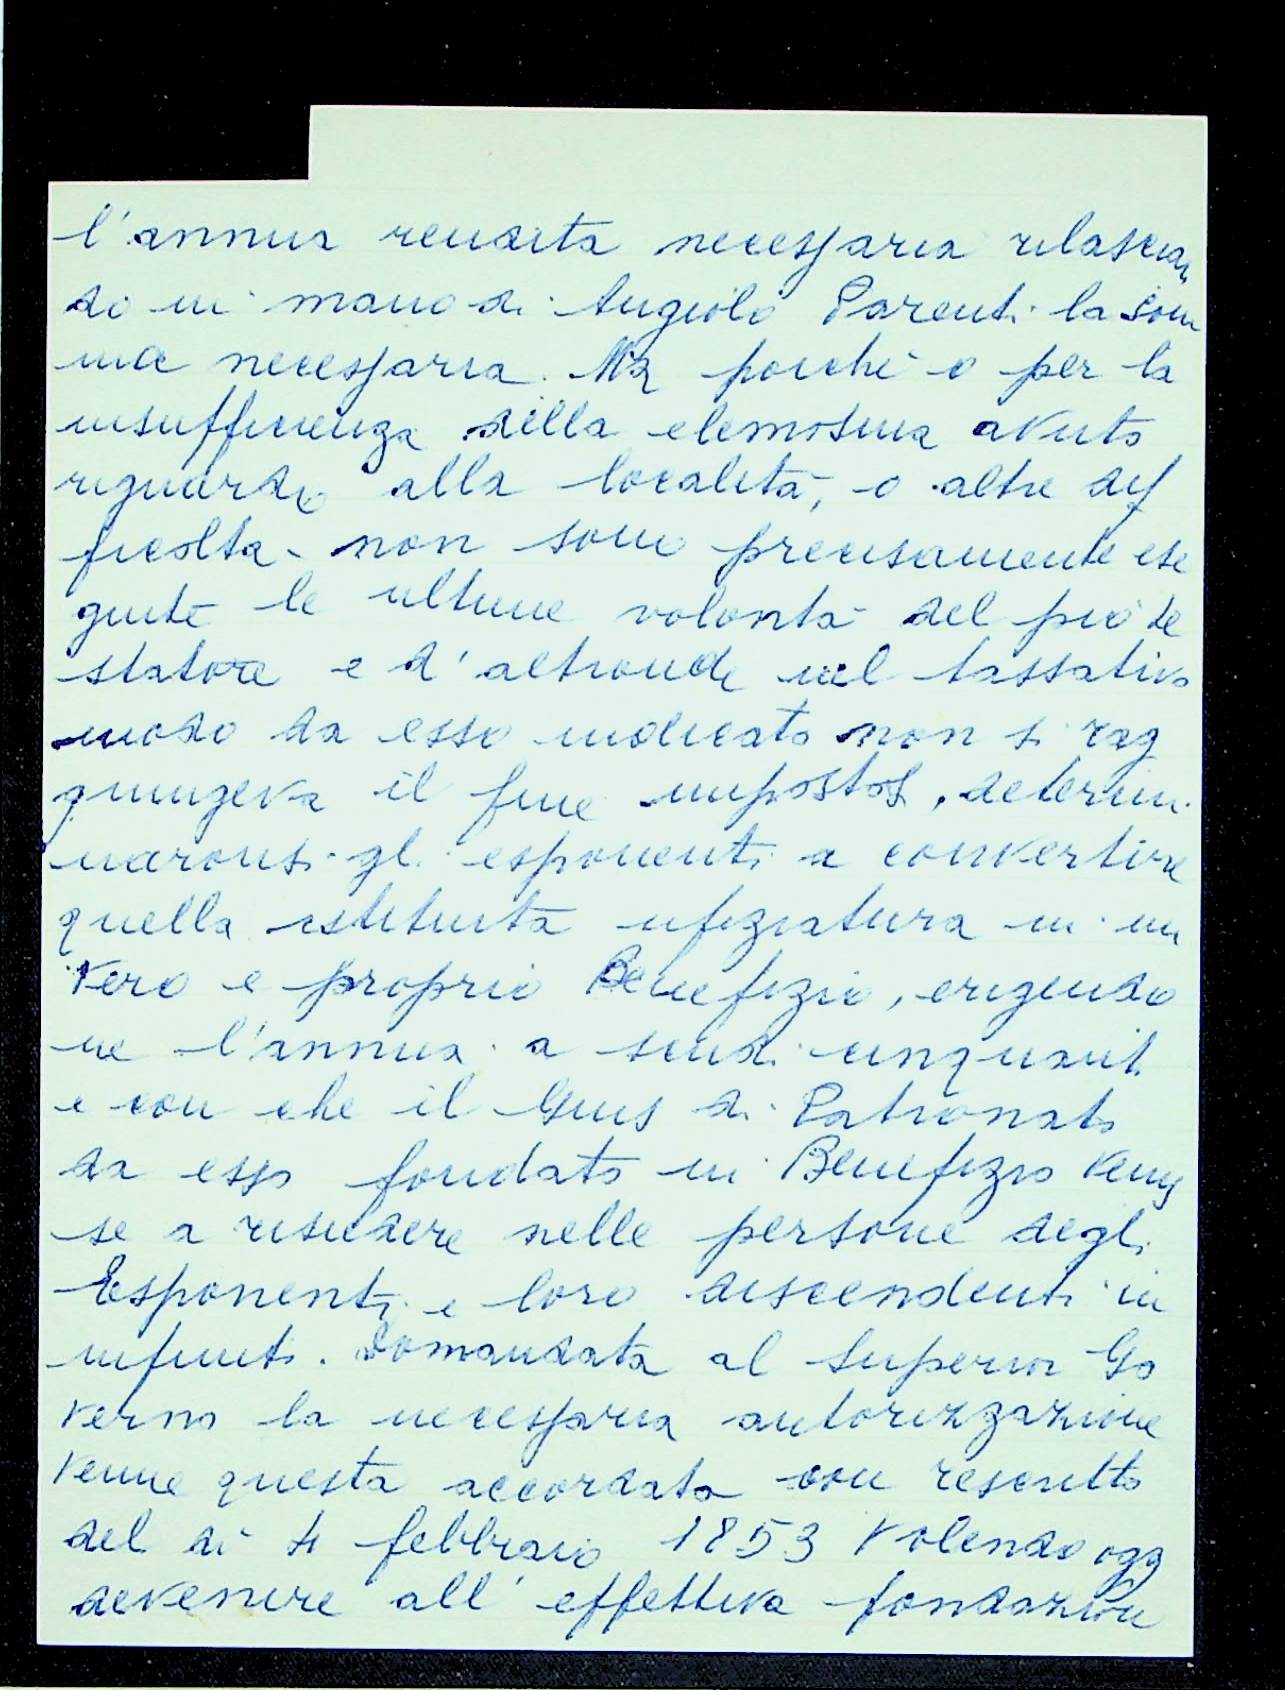 l'annua rendita necessaria rilascian
do in mano di Angiolo Parenti la som
ma necessaria. Ma poiché o per la
insufficienza della elemosina avuto
riguardo alla località, o altre dif
ficoltà non sono precisamente ese
guite le ultime volontà del pio te
statore e d'altronde nel tassativo
modo da esso indicato non si rag
giungeva il fine impostosi, determi
naronsi gli esponenti a convertire
quella istituita ufiziatura in un
vero e proprio Benefizio, erigendo
ne l'annua a scudi cinquanta
e con che il Gius di Patronato
da esso fondato in Benefizio venis
se a risiedere nelle persone degli
Esponenti e loro discendenti in
infinito. Domandata al Superior Go
verno la necessaria autorizzazione
venne questa accordata con rescritto
del dì 4 febbraio 1853 Volendo ogg
devenire all'effettiva fondazione